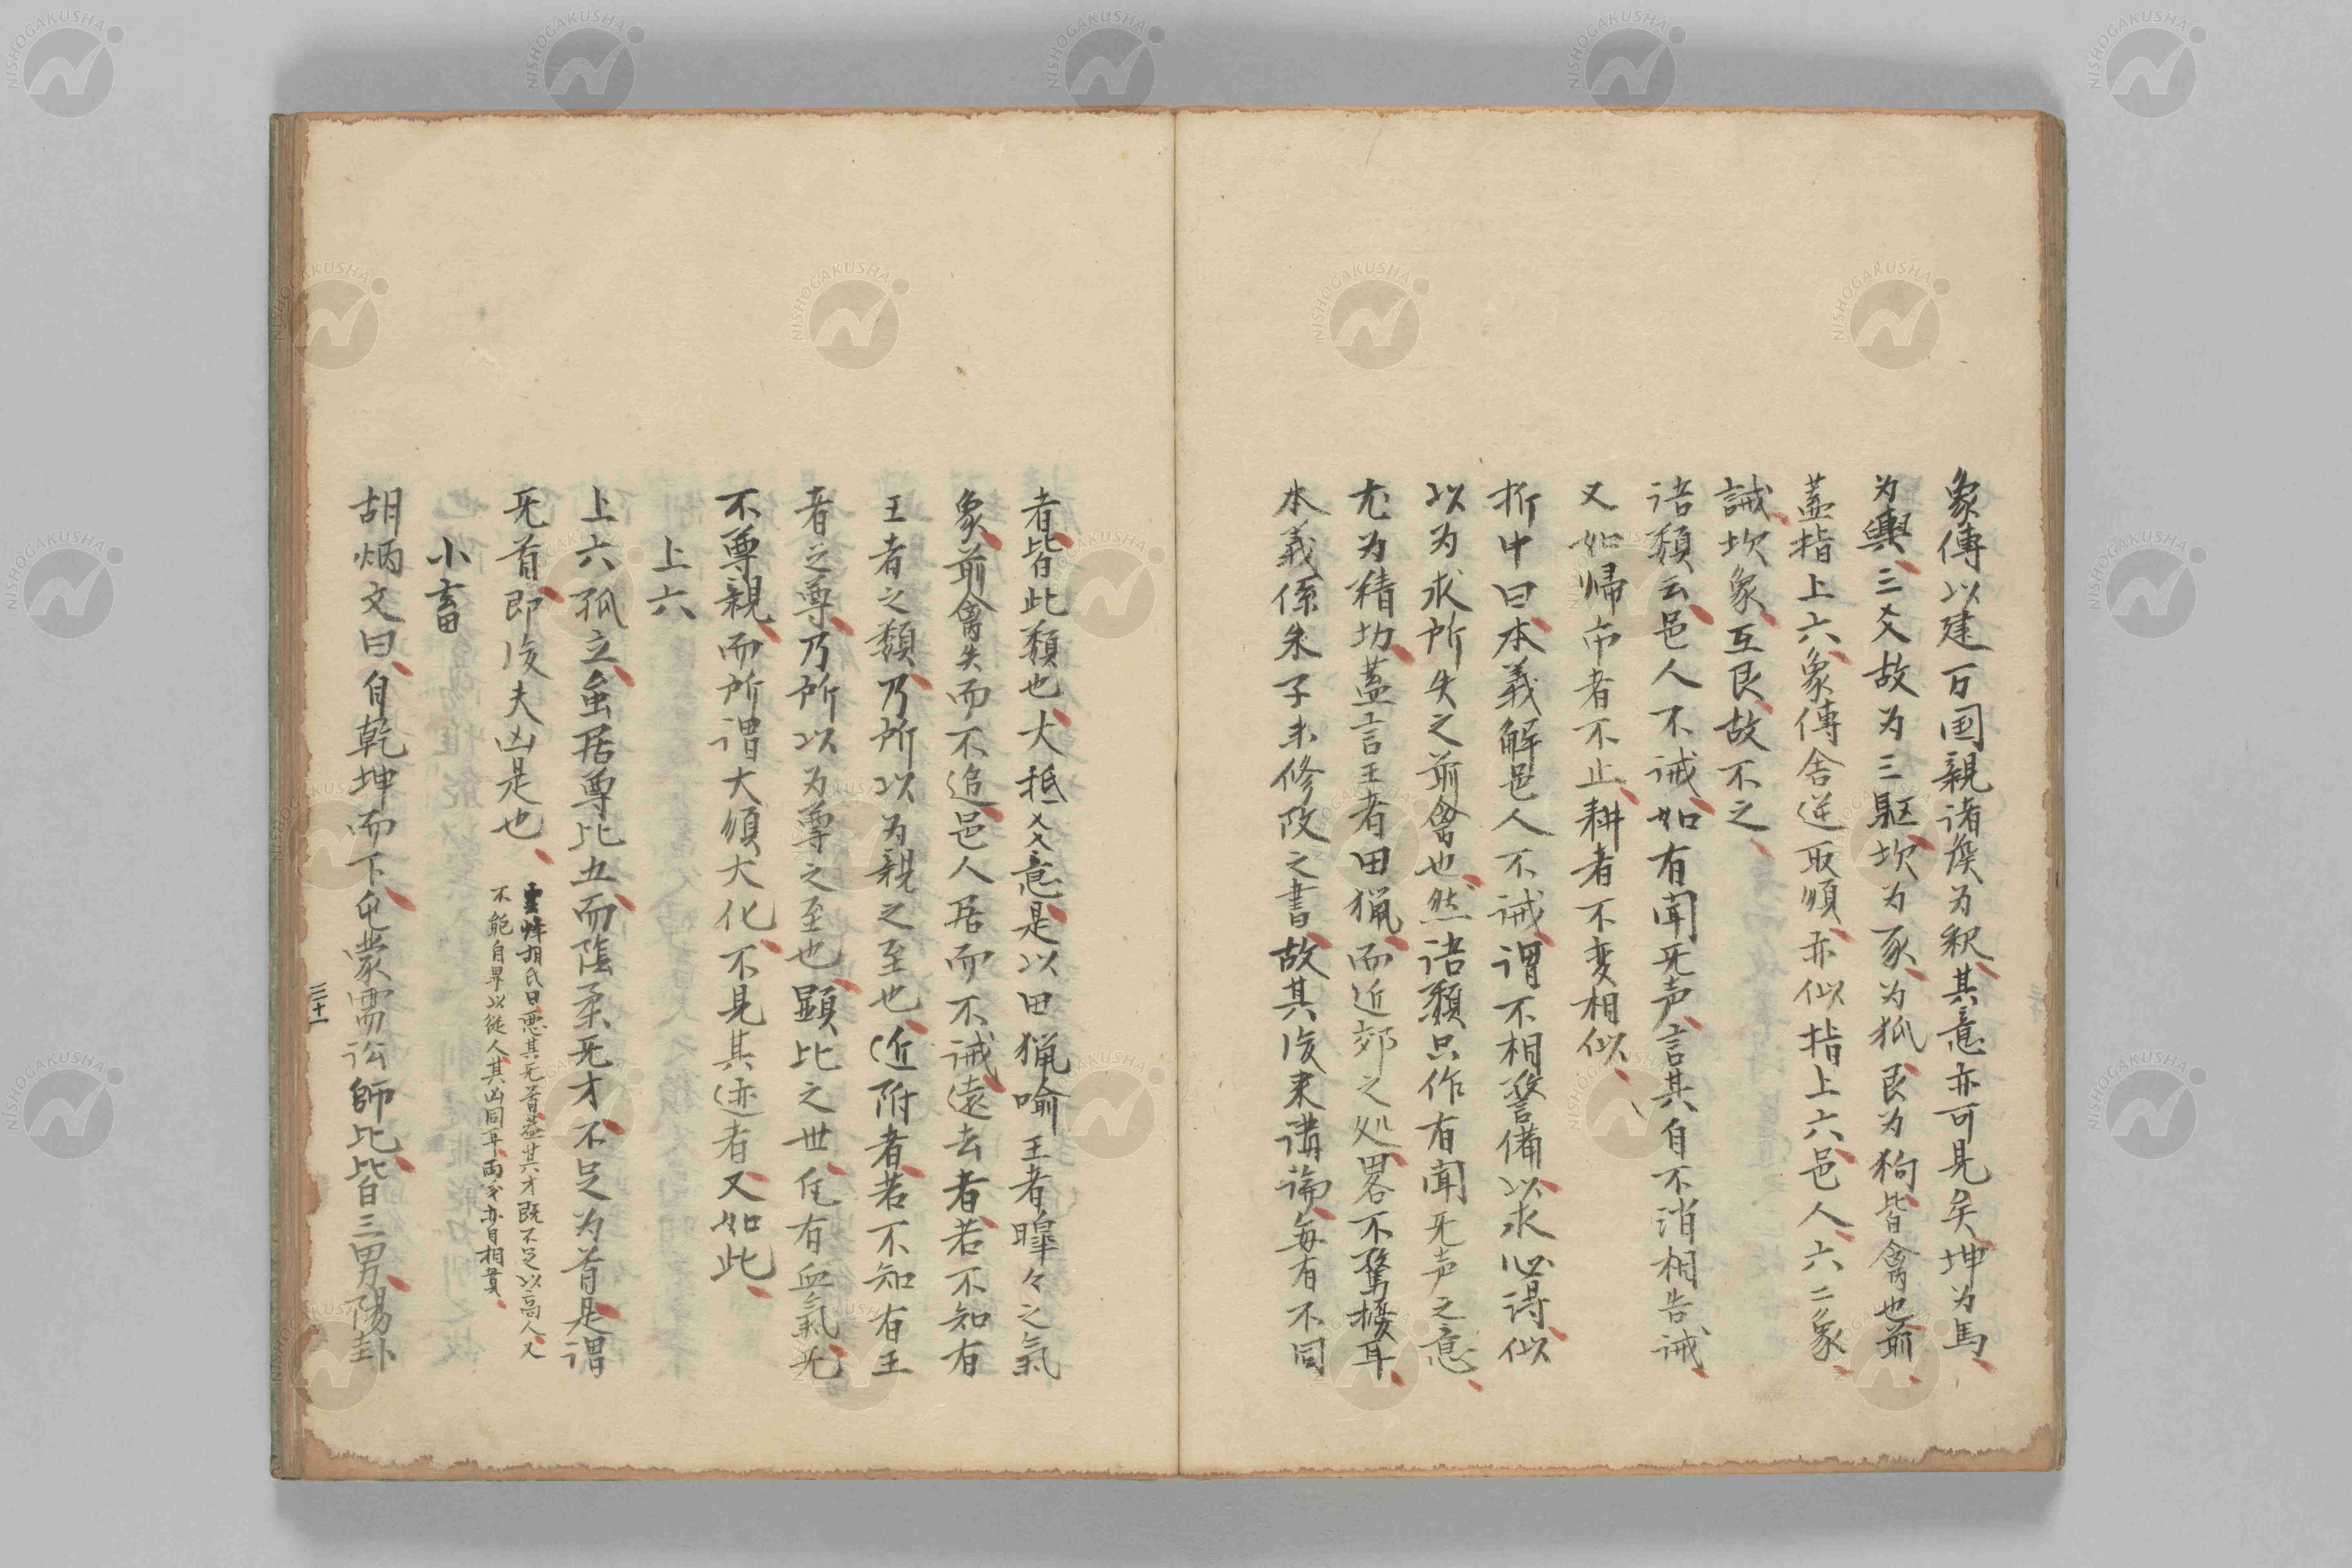 象傳以建万国親諸侯为釈、其意亦可見矣、坤为馬、
为輿、三爻故为三駆、坎为豕、为狐、艮为狗、皆禽也、前
蓋指上六、象傳舍逆取順、亦似指上六、邑人、六二象、
誡坎象、互艮、故不之、
語類云、邑人不誡、如有聞无声、言其自不消相告誡、
又如帰市者不止、耕者不変相似、
折中曰、本義解邑人不誡、謂不相警備、以求必得、似
以为求所失之前禽也、然語類只作有聞无声之意、
尤为精切、蓋言王者田猟、而近郊之処、畧不驚擾耳、
本義係朱子未修改之書、故其後来講論、每有不同
者、皆此類也、大抵爻意、是以田猟喻王者皥々之氣
象、前禽失而不追、邑人居而不誡、遠去者、若不知有
王者之類、乃所以为親之至也、近附者、若不知有王
者之尊、乃所以为尊之至也、顕比之世、凡有血氣、无
不尊親、而所謂大順大化、不見其迹者、又如此、
上六
上六孤立、虽居尊比五、而陰柔无才、不足为首、是謂
无首、即後夫凶是也、
雲峰胡氏曰、悪其无首、蓋其才既不足以高人、又
不能自卑以従人、其凶同耳、両爻亦自相貫、
小畜
胡炳文曰、自乾坤而下、屯蒙需訟師比、皆三男、陽卦
三十一
NISHOGAKUSHA